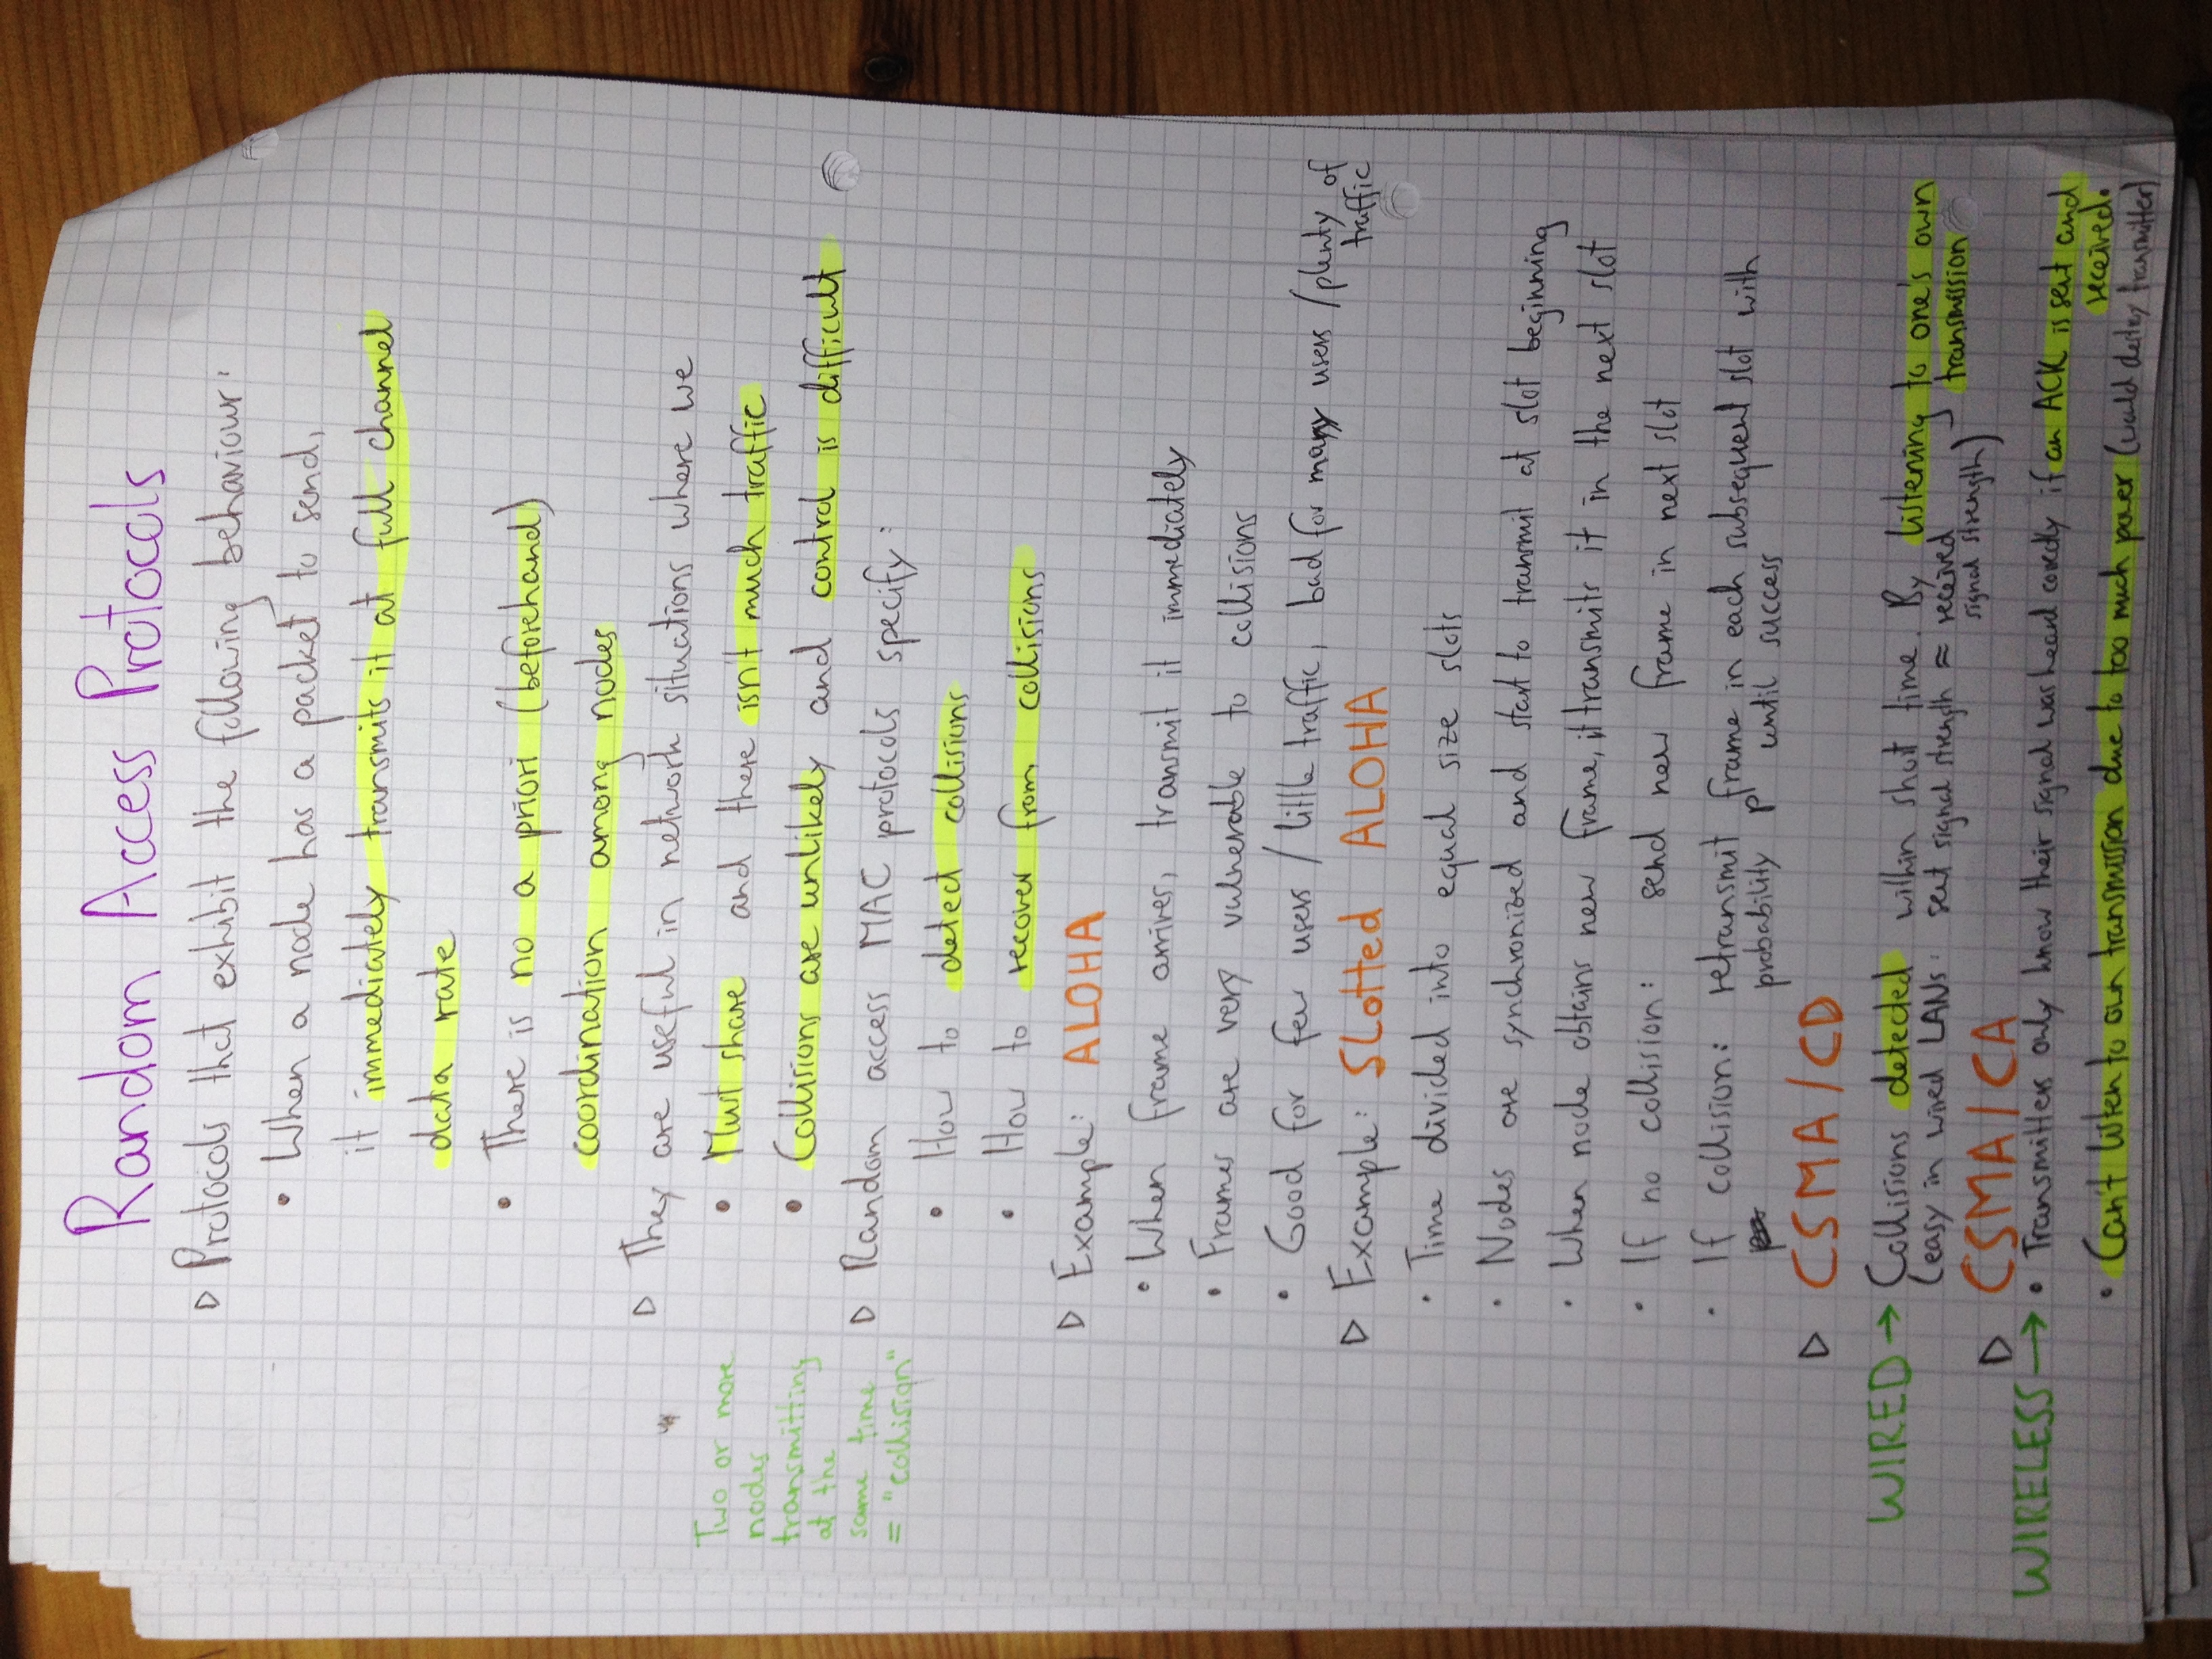 Random Access Protocols
▷ Protocols that exhibit the following behaviour:
• When a node has a packet to send,
it immediately transmits it at full channel
data rate
• There is no a priori (beforehand)
coordination among nodes
▷ They are useful in network situations where we
• Must share and there isn't much traffic
• Collisions are unlikely and control is difficult
Two or more
nodes
transmitting
at the
same time
= "collision"
▷ Random access MAC protocols specify:
• How to detect collisions
• How to recover from collisions
▷ Example: ALOHA
• When frame arrives, transmit it immediately
• Frames are very vulnerable to collisions
• Good for few users / little traffic, bad for many users / plenty of
traffic
▷ Example: Slotted ALOHA
• Time divided into equal size slots
• Nodes are synchronized and start to transmit at slot beginning
• When node obtains new frame, it transmits it in the next slot
• If no collision: send new frame in next slot
• If collision: retransmit frame in each subsequent slot with
probability p until success
▷ CSMA/CD
WIRED → Collisions detected within short time. By listening to one's own
(easy in wired LANs: sent signal strength ≈ received transmission
signal strength)
▷ CSMA/CA
WIRELESS → • Transmitters only know their signal was heard correctly if an ACK is sent and
received.
• Can't listen to own transmission due to too much power (would destroy transmitter)